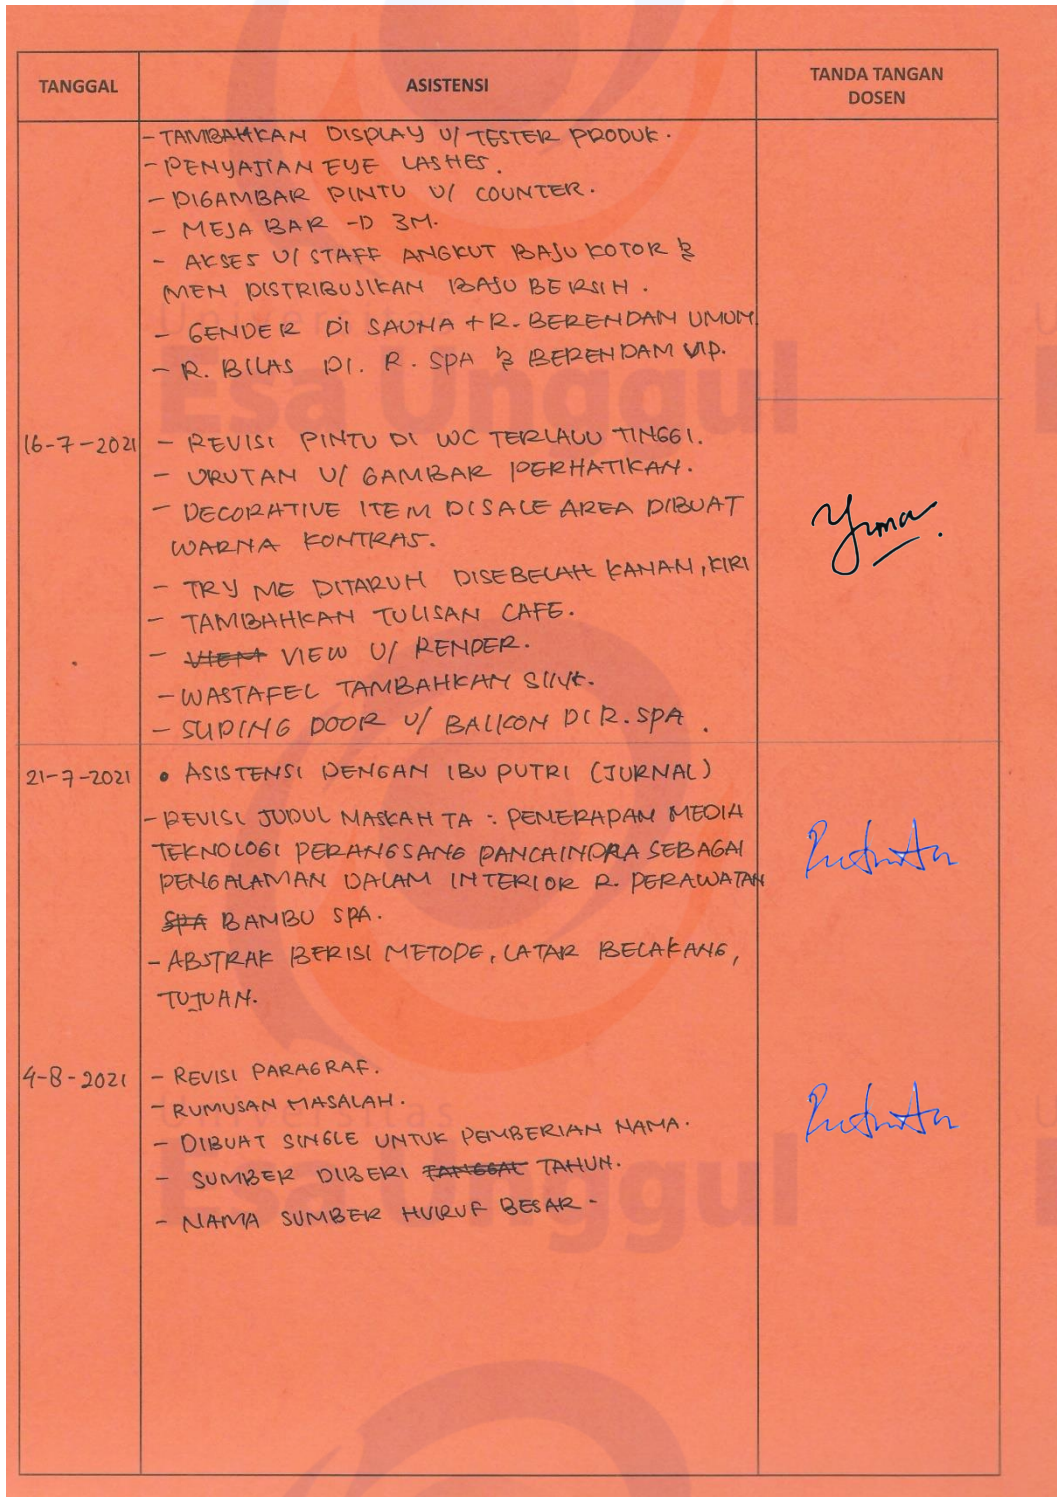 TANGGAL ASISTENSI TANDA TANGAN
DOSEN
- TAMBAHKAN DISPLAY U/ TESTER PRODUK.
- PENYAJIAN EYE LASHES.
- DIGAMBAR PINTU U/ COUNTER.
- MEJA BAR -D 3M.
- AKSES U/ STAFF ANGKUT BAJU KOTOR &
MEN DISTRIBUSIKAN BAJU BERSIH.
- GENDER DI SAUNA + R. BERENDAM UMUM.
- R. BILAS DI. R. SPA & BERENDAM VIP.
Esa Unggul
16-7-2021 - REVISI PINTU DI WC TERLALU TINGGI.
- URUTAN U/ GAMBAR PERHATIKAN.
- DECORATIVE ITEM DISALE AREA DIBUAT
WARNA KONTRAS.
- TRY ME DITARUH DISEBELAH KANAN, KIRI
- TAMBAHKAN TULISAN CAFE.
- VIEW U/ RENDER.
- WASTAFEL TAMBAHKAN
- SLIDING DOOR U/ BALKON DI R. SPA.
21-7-2021 • ASISTENSI DENGAN IBU PUTRI (JURNAL)
- REVISI JUDUL NASKAH TA : PENERAPAN MEDIA
TEKNOLOGI PERANGSANG PANCAINDRA SEBAGAI
PENGALAMAN DALAM INTERIOR R. PERAWATAN
SPA BAMBU SPA.
- ABSTRAK BERISI METODE, LATAR BELAKANG,
TUJUAN.
4-8-2021 - REVISI PARAGRAF.
- RUMUSAN MASALAH.
Universitas
- DIBUAT SINGLE UNTUK PEMBERIAN NAMA.
- SUMBER DIBERI TANGGAL TAHUN.
Esa Unggul
- NAMA SUMBER HURUF BESAR -